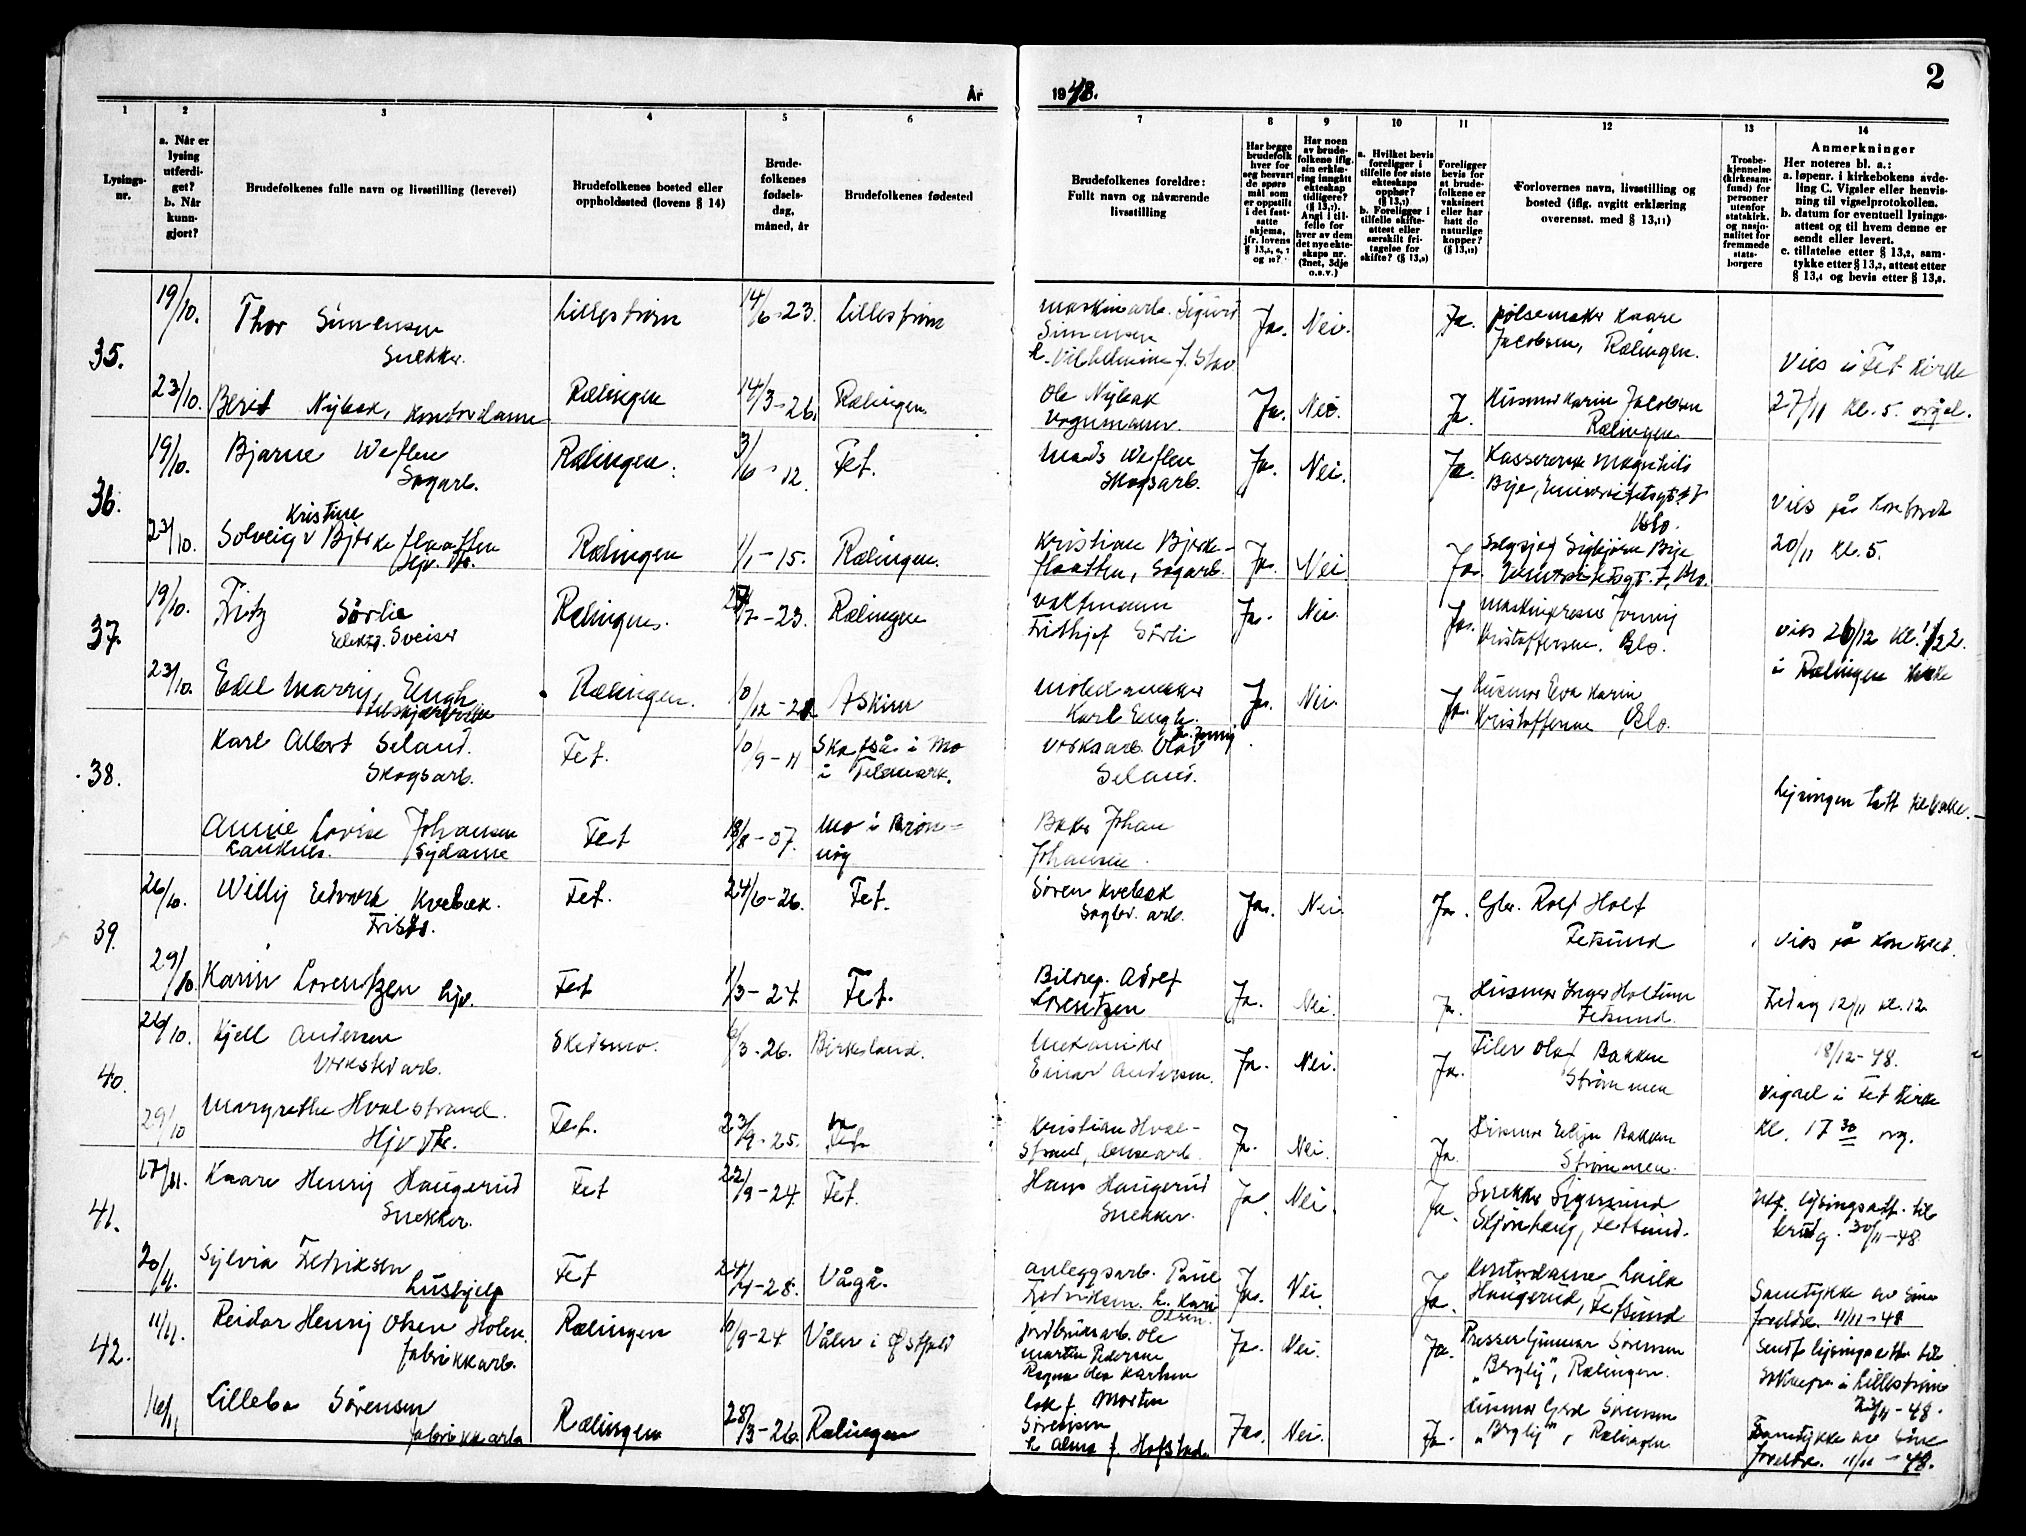 År 1948. 2
1 2 3 4 5 6 7 8 9 10 11 12 13 14
Lysings-nr.
a. Når er lysing utferdiget? b. Når kunngjort?
Brudefolkenes fulle navn og livsstilling (levevei)
Brudefolkenes bosted eller oppholdssted (lovens § 14)
Brudefolkenes fødselsdag, måned, år
Brudefolkenes fødested
Brudefolkenes foreldre: Fullt navn og nåværende livsstilling
Har begge brudefolk hver for seg besvart de spørsmål som er oppstilt i det fastsatte skjema, jfr. lovens
Har noen av brudefolkene iflg. sin erklæring inngått ekteskap tidligere? (§ 13,7). Angi i tilfelle for hver av dem det nye ekteskaps nr. (2net, 3dje o.s.v.)
a. Hvilket bevis foreligger i tilfelle for siste ekteskaps opphør? (§ 13,7) b. Foreligger i tilfelle skifteattest eller særskilt fritagelse for skifte?
Foreligger bevis for at brudefolkene er vaksinert eller har hatt de naturlige kopper?
Forlovernes navn, livsstilling og bosted (iflg. avgitt erklæring overensst. med § 13,11)
Trosbekjennelse (kirkesamfund) for personer utenfor statskirk. og nasjonalitet for fremmede statsborgere
Anmerkninger
Her noteres bl. a.:
a. løpenr. i kirkebokens avdeling C. Vigsler eller henvisning til vigselprotokollen.
b. datum for eventuell lysingsattest og til hvem denne er sendt eller levert.
c. tillatelse etter § 13,2, samtykke etter § 13,3, attest etter § 13,4 og bevis etter § 13,8.
35. 19/10. Thor Simensen Snekker. Lillestrøm 14/6-23. Lillestrøm maskinarb. Sigurd Simensen Ja. Nei. Ja. pølsemaker Kaare Jacobsen, Rælingen.
Vies i Fet Kirke
23/10. Berit Nybak, Kontordame Rælingen 14/3-26. Rælingen Ole Nybak Vognmann. Ja. Nei. Ja. Husmor Karin Jacobsen Rælingen 27/11 kl. 5. orgel.
36. 19/10. Bjarne Weflen Sagarb. Rælingen. 3/6-12 Fet. Mads Weflen Skogsarb. Ja. Nei. Ja. Kassererske Magnhild Bye, Universitetsgt. 7 Oslo.
Vies på Kontoret
23/10. Solveig Kristine Bjerkeflaatten Hjv. Rælingen 1/1-15. Rælingen. Kristian Bjerkeflaatten, Sagarb. Ja. Nei Ja. Sigbjørn Bye Universitetsgt. 7, Oslo. 20/11 kl. 5.
37. 19/10. Fritz Sørlie Elektr. Sveiser Rælingen. 7-23. Rælingen Vaktmann Frithjof Sørli Ja. Nei. Ja. Kristoffersen, Oslo. Vies 26/12 kl.
i Rælingen kirke
23/10. Edel Marry Engh Rælingen. 10/12-22 Askim Karl Engh. Ja. Nei. Ja. Husmor Eva Karin Kristoffersen, Oslo.
38. Karl Albert Seland. Skogsarb. Fet. 10/9-11 Skafså i Mo i Telemark. Verksarb. Olav Seland.
Lysingen tatt tilbake.
Annie Lovise Johansen Sydame Fet 18/8-07. Mo i Brønnøy Baker Johan Johansen.
39. 26/10. Willy Edvard Kvebæk. Frisør. Fet. 24/6-26. Fet. Søren Kvebæk Sagbr. arb. Ja. Nei. Ja. Gbr. Rolf Holt Fetsund
Vies på Kontoret
29/10. Karin Lorentzen hjv. Fet 1/3-24. Fet. Bilrep. Adolf Lorentzen Ja. Nei. Ja. Husmor Inger Fetsund. Fredag 12/11 kl. 12.
40. 26/10. Kjell Andersen Verkstedarb. Skedsmo. 6/3-26. Birkeland. Mekaniker Einar Andersen. Ja. Nei. Ja. Filer Olaf Bakken Strømmen 18/12-48.
Vigsel i Fet kirke
29/10 Margrethe Hvalstrand. Hjv. Fet. 23/9-25. Fet Kristian Hvalstrand, lensearb. Ja. Nei. Ja. Husmor Bakken Strømmen. kl. 17 30 org.
41. 17/11. Kaare Henry Haugerud Snekker. Fet 22/9-24. Fet. Hans Haugerud Snekker. Ja. Nei. Ja. Snekker Sigmund Fetsund. lysingsatt. til brudg. 30/11-48.
20/11. Sylvia Fredriksen Hushjelp Fet 24/4-28. Vågå. anleggsarb. Paul Fredriksen. Kari Olsen. Ja. Nei Ja. Kontordame Laila Haugerud, Fetsund Samtykke av sine foreldre. 11/11-48
42. 11/11. Reidar Henry Olsen Holen. fabrikkarb. Rælingen 10/9-24 Våler i Østfold jordbruksarb. Ole Martin Pedersen Ragna Karlsen Ja. Nei. Ja. Presser Gunnar Sørensen "Berglij", Rælingen. Sendt lysingsattest til i Lillestrøm 23/11-48.
16/11 Lillebo Sørensen fabrikkarb Rælingen 28/3-26. Rælingen Morten Sørensen Alma f. Hofstad. Ja. Nei. Ja. Husmor Gerd Sørensen "Berglij", Rælingen Samtykke av sine foreldre. 11/11-48.